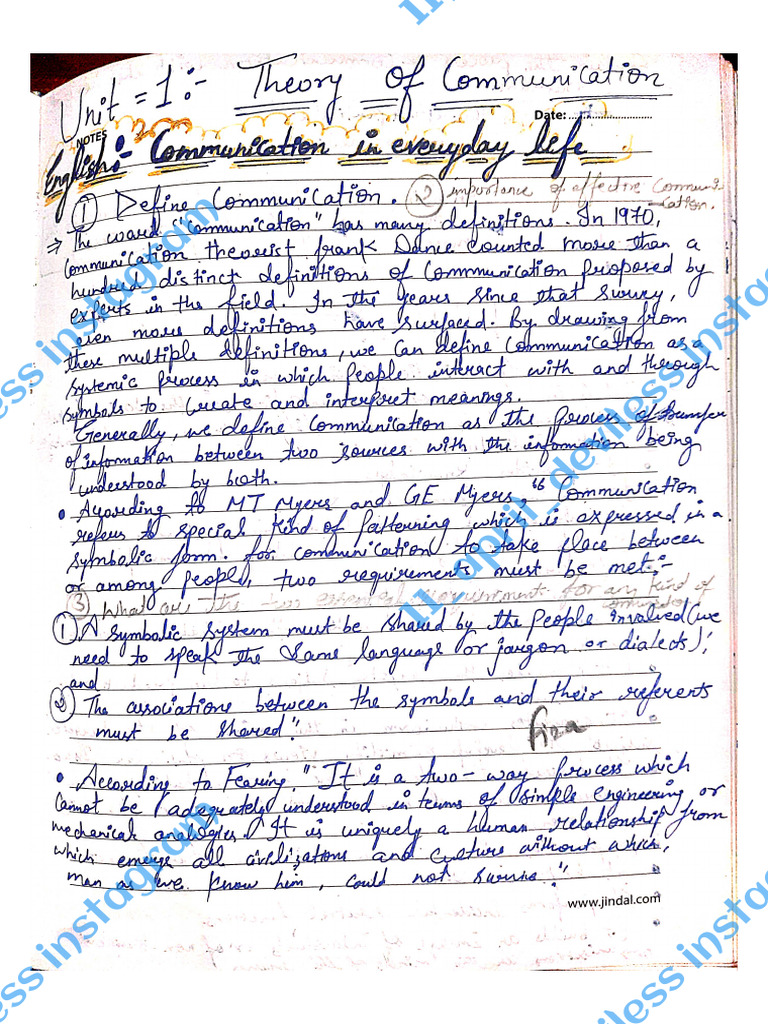 Unit = 1:- Theory of Communication
NOTES
Date:
English:- Communication in everyday life.
① Define Communication. ② importance of effective Communi-
cation.
⇒ The word "Communication" has many definitions. In 1970,
Communication theorist frank Dance counted more than a
hundred distinct definitions of Communication proposed by
experts in the field. In the years since that survey,
even more definitions have surfaced. By drawing from
these multiple definitions, we can define communication as a
systemic process in which people interact with and through
symbols to create and interpret meanings.
Generally, we define communication as the process of transfer
of information between two sources with the information being
understood by both.
• According to MT Myers and GE Myers, "Communication
refers to special kind of patterning which is expressed in a
symbolic form. for communication to take place between
or among people, two requirements must be met:-
③ What are the two essential requirements for any kind of
① A symbolic system must be shared by the people involved (we
need to speak the same language or jargon or dialects);
and
② The associations between the symbols and their referents
must be shared."
Fiza
• According to Fearing, "It is a two-way process which
cannot be adequately understood in terms of simple engineering or
mechanical analogies. It is uniquely a human relationship from
which emerge all civilizations and culture without which,
man as we know him, could not survive."
www.jindal.com
11 april deviless instagram